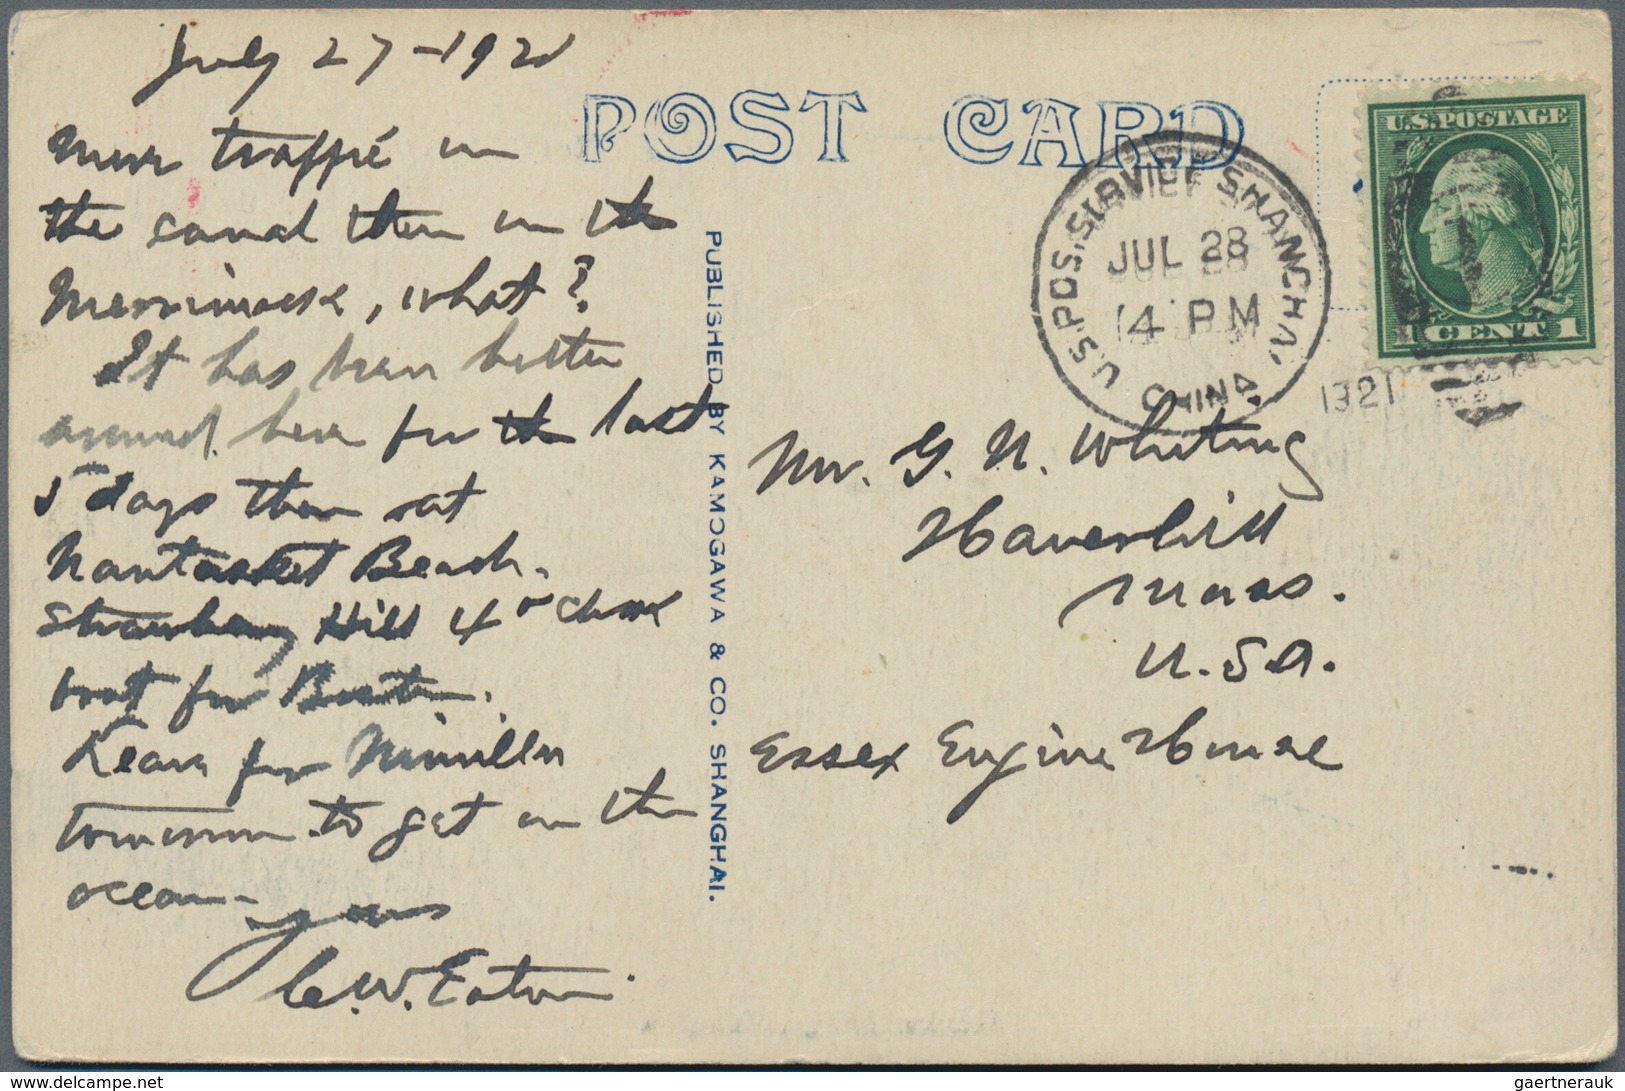 July 27-1921
more traffic on
the canal then in the
Merrimack, what?
It has been hotter
around here for the last
5 days then at
Nantasket Beach.
Strawberry Hill 4 o'clock
boat for Boston.
Leave for
tomorrow to get on the
ocean-
yours
C.W. Eaton.
POST CARD
PUBLISHED BY KAMOGAWA & CO. SHANGHAI.
U.S. POS. SERVICE SHANGHAI,
JUL 28
4 PM
CHINA.
1921
U.S. POSTAGE
1 CENT 1
Mr. G. N. Whiting
Haverhill
Mass.
U.S.A.
Essex Engine House
www.delcampe.net
gaertnerauk